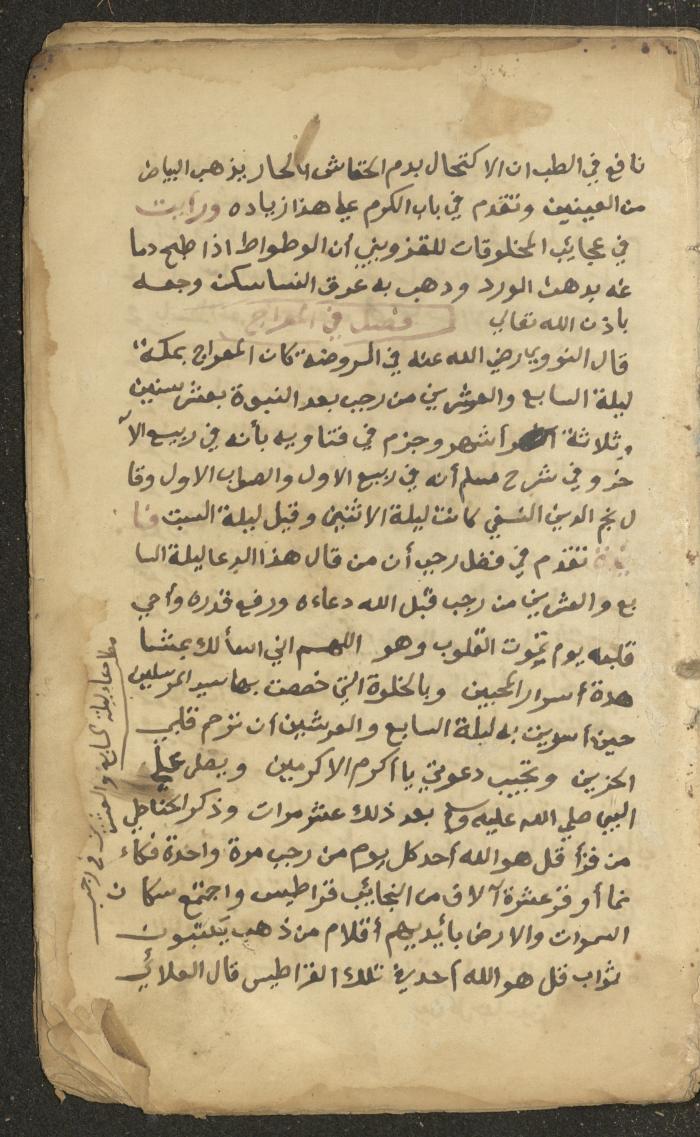 نافع في الطب ان الاكتحال بدم الخفاش الحار يذهب البياض
من العينين وتقدم في باب الكرم على هذا زياده ورايت
في عجايب المخلوقات للقزويني أن الوطواط اذا طبخ دما
غه بدهن الورد ودهن به عرق النسا سكن وجعه
باذن الله تعالى فصل في المعراج
قال النووي رضي الله عنه في الروضة كان المعراج بمكة
ليلة السابع والعشرين من رجب بعد النبوة بعشر سنين
وثلاثة أشهر وجزم في فتاويه بأنه في ربيع الآ
خر وفي شرح مسلم أنه في ربيع الاول والصواب الاول وقا
ل نجم الدين النسفي كانت ليلة الاثنين وقيل ليلة السبت فا
ئدة تقدم في فضل رجب أن من قال هذا الدعا ليلة السا
بع والعشرين من رجب قبل الله دعاءه ورفع قدره وأحي
قلبه يوم تموت القلوب وهو اللهم اني اسألك بمشا
هدة أسرار المحبين وبالخلوة التي خصصت بها سيد المرسلين
حين أسريت به ليلة السابع والعشرين أن ترحم قلبي
الحزين وتجيب دعوتي يا أكرم الاكرمين ويصلى على
النبي صلي الله عليه وسلم بعد ذلك عشر مرات وذكر
من قرأ قل هو الله أحد كل يوم من رجب مرة واحدة فكاء
نما أوقر عشرة آلاف من النجايب قراطيس واجتمع سكان
السموات والارض بأيديهم أقلام من ذهب يكتبون
ثواب قل هو الله أحد في تلك القراطيس قال العلائي